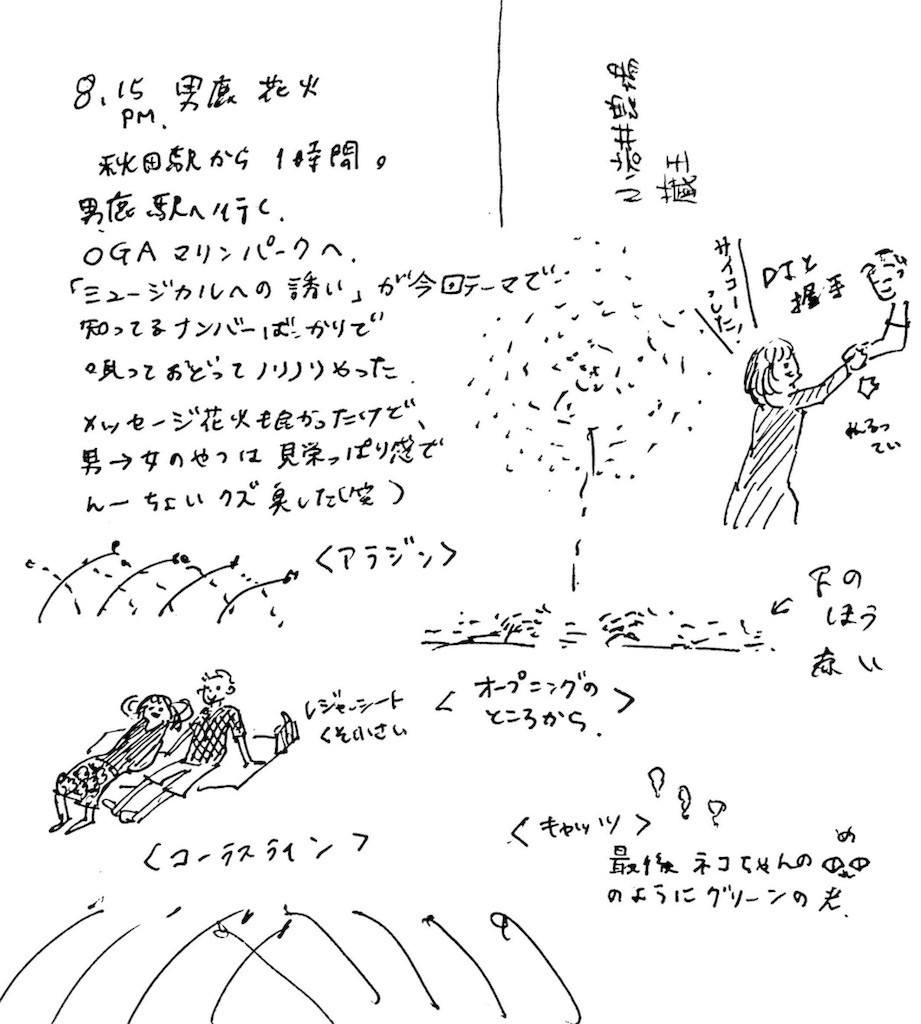 8.15 男鹿 花火
PM.
秋田駅から 1時間。
男鹿駅へ行く.
OGA マリンパークへ.
「ミュージカルへの誘い」が今回テーマで
知ってるナンバーばっかりで
唄っておどってノリノリやった.
メッセージ花火も良かったけど、
男→女のやつは見栄っぱり感で
んーちょいクズ臭した(笑)
<アラジン>
レジャーシート
くそ小さい
<コーラスライン>
小岩井農場
蔵王
サイコーでした!
DJと
握手
下の
ほう
赤い
<オープニングの
ところから.>
<キャッツ>
め
最後 ネコちゃんの
のようにグリーンの光.